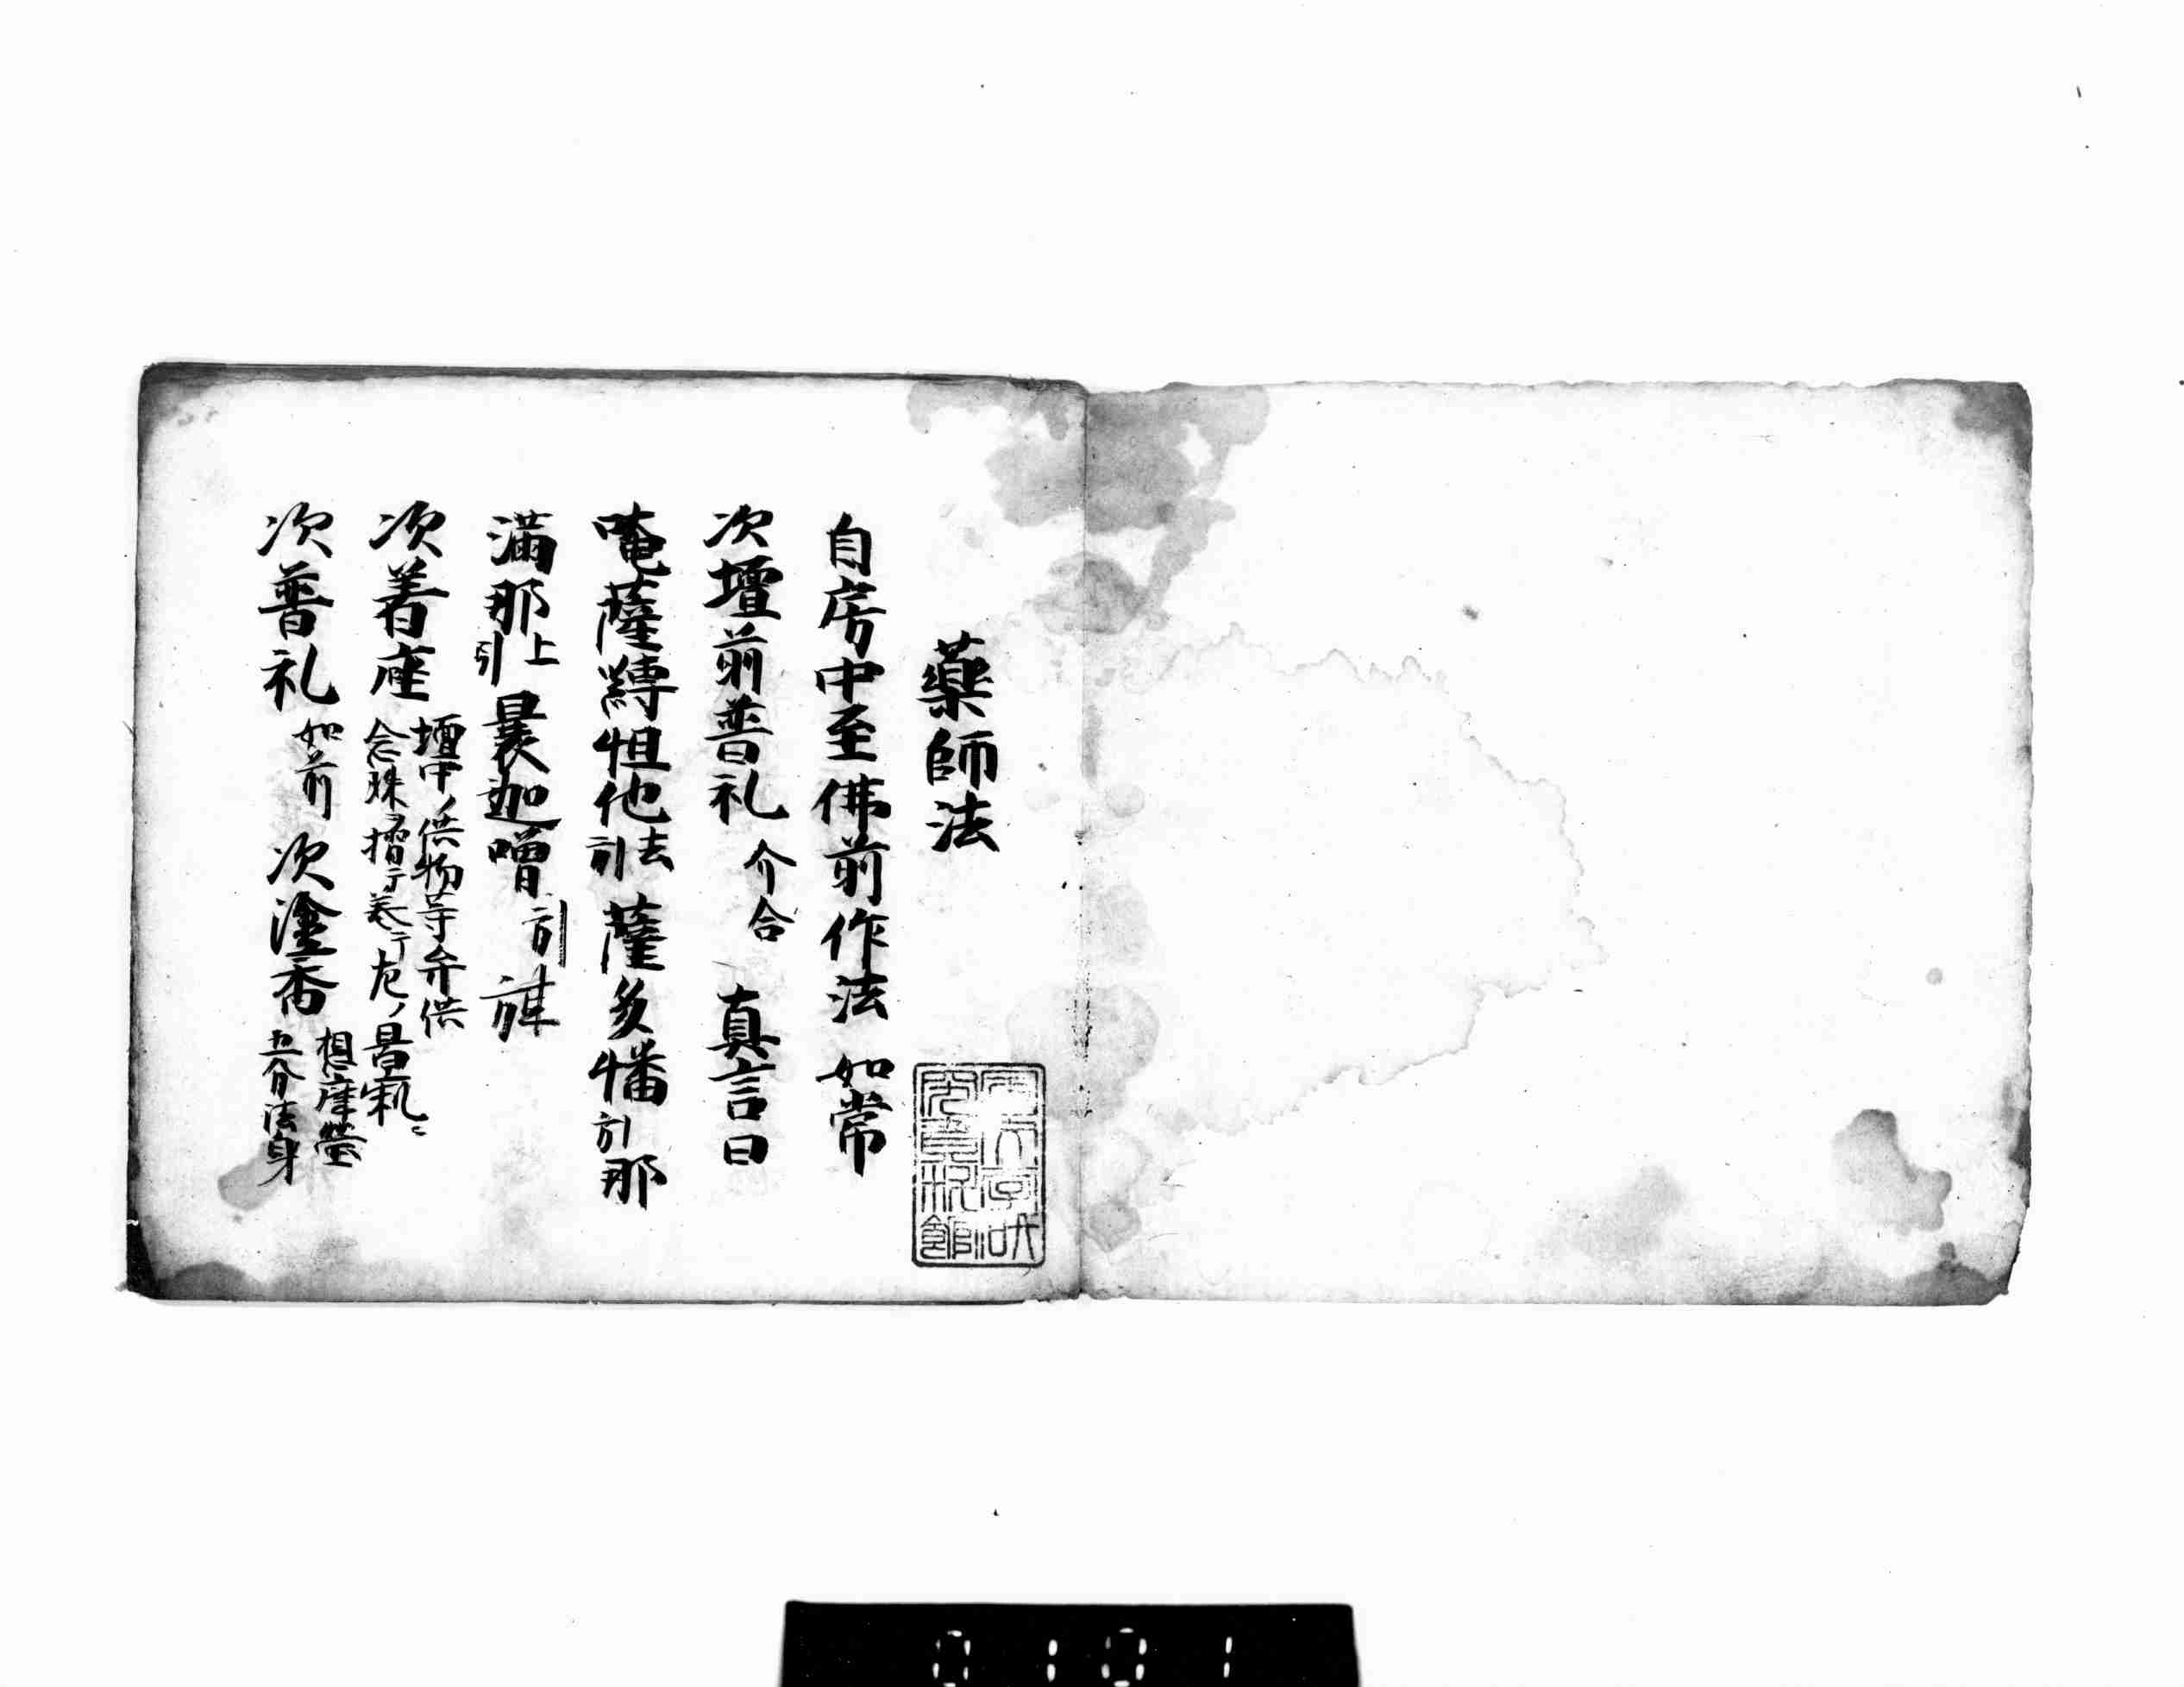 藥師法
自房中至佛前作法 如常
次壇前普礼 介合 真言曰
唵薩嚩怛他引去薩多幡引那
滿那上引曩迦噌引
次着座 壇中ノ供物等弁供
念珠
次普礼 如前 次塗香 想摩瑩
五分法身
0101